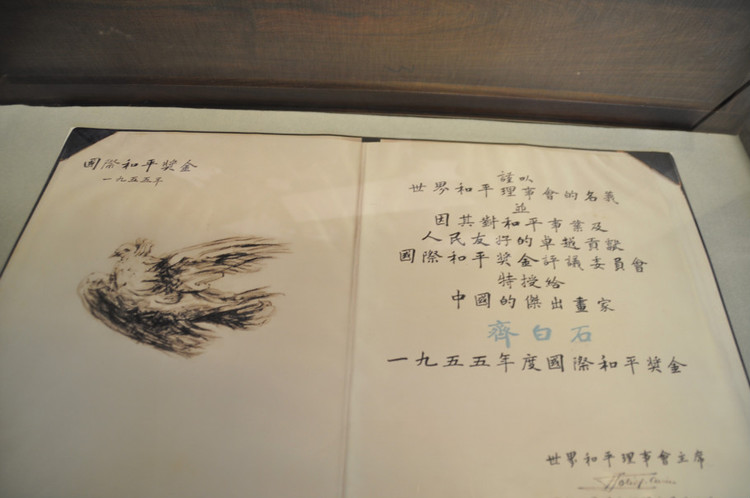 國際和平獎金
一九五五年
謹以
世界和平理事會的名義
並
因其對和平事業及
人民友好的卓越貢獻
國際和平獎金評議委員會
特授給
中國的傑出畫家
齊白石
一九五五年度國際和平獎金
世界和平理事會主席